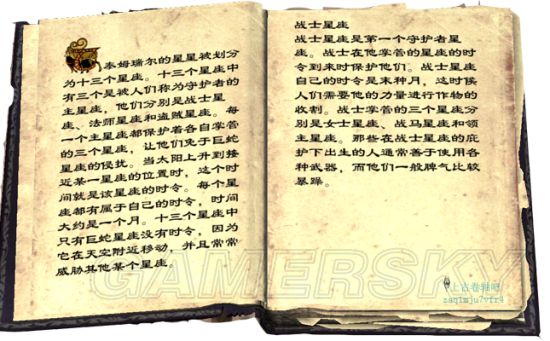 泰姆瑞尔的星星被划分
为十三个星座。十三个星座中
有三个是被人们称为守护者的
主星座，他们分别是战士星
座、法师星座和盗贼星座。每
一个主星座都保护着各自掌管
的三个星座，让他们免于巨蛇
星座的侵扰。当太阳上升到接
近某一星座的位置时，这个时
间就是该星座的时令。每个星
座都有属于自己的时令，时间
大约是一个月。十三个星座中
只有巨蛇星座没有时令，因为
它在天空附近移动，并且常常
威胁其他某个星座。
战士星座
战士星座是第一个守护者星
座。战士在他掌管的星座的时
令到来时保护他们。战士星座
自己的时令是末种月，这时候
人们需要他的力量进行作物的
收割。战士掌管的三个星座分
别是女士星座、战马星座和领
主星座。那些在战士星座的庇
护下出生的人通常善于使用各
种武器，而他们一般脾气比较
暴躁。
GAMERSKY
上古卷轴吧
zaq1mju7vfr4